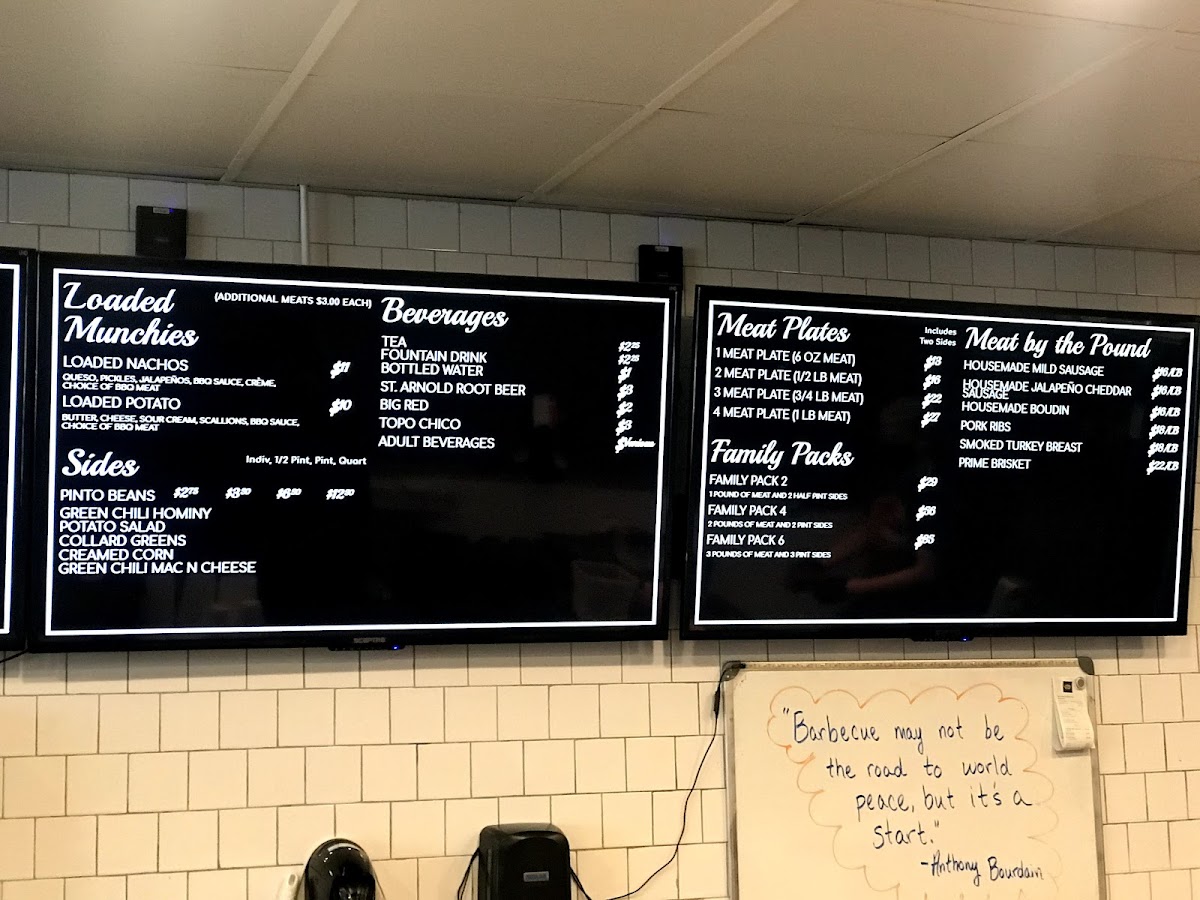 Loaded
Munchies
(ADDITIONAL MEATS $3.00 EACH)
LOADED NACHOS $11
QUESO, PICKLES, JALAPEÑOS, BBQ SAUCE, CRÈME,
CHOICE OF BBQ MEAT
LOADED POTATO $10
BUTTER, CHEESE, SOUR CREAM, SCALLIONS, BBQ SAUCE,
CHOICE OF BBQ MEAT
Sides
Indiv, 1/2 Pint, Pint, Quart
PINTO BEANS $2.75 $3.50 $6.50 $12.50
GREEN CHILI HOMINY
POTATO SALAD
COLLARD GREENS
CREAMED CORN
GREEN CHILI MAC N CHEESE
Beverages
TEA $2.25
FOUNTAIN DRINK $2.25
BOTTLED WATER $1
ST. ARNOLD ROOT BEER $3
BIG RED $2
TOPO CHICO $3
ADULT BEVERAGES
SCEPTRE
Meat Plates
Includes
Two Sides
1 MEAT PLATE (6 OZ MEAT) $13
2 MEAT PLATE (1/2 LB MEAT) $16
3 MEAT PLATE (3/4 LB MEAT) $22
4 MEAT PLATE (1 LB MEAT) $27
Family Packs
FAMILY PACK 2 $29
1 POUND OF MEAT AND 2 HALF PINT SIDES
FAMILY PACK 4 $56
2 POUNDS OF MEAT AND 2 PINT SIDES
FAMILY PACK 6 $85
3 POUNDS OF MEAT AND 3 PINT SIDES
Meat by the Pound
HOUSEMADE MILD SAUSAGE $16/LB
HOUSEMADE JALAPEÑO CHEDDAR $16/LB
SAUSAGE
HOUSEMADE BOUDIN $16/LB
PORK RIBS $18/LB
SMOKED TURKEY BREAST $18/LB
PRIME BRISKET $22/LB
"Barbecue may not be
the road to world
peace, but it's a
start."
-Anthony Bourdain